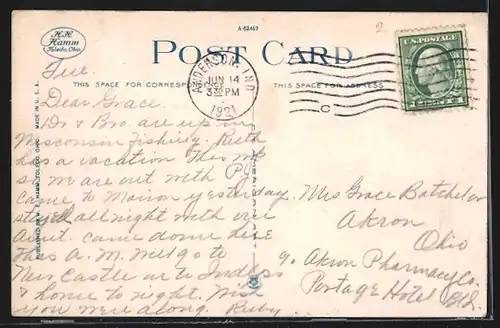 A-62457
H.H.
Hamm
Toledo, Ohio.
POST CARD
THIS SPACE FOR CORRESPONDENCE
THIS SPACE FOR ADDRESS
ANDERSON, IND
JUN 14
3:30 PM
1921
C
U.S. POSTAGE
MADE IN U.S.A.
PUBLISHED BY H. H. HAMM, TOLEDO, OHIO.
2
Tue.
Dear Grace.
Dr & Bro. are up in
Wisconsin fishing. Ruth
has a vacation this wk
so we are out with P.J.
Came to Marion yesterday
stayed all night with
Aunt. came down here
this A.M. will go to
New Castle or to Indpls
& home to night. Wish
you were along. Ruby
Mrs Grace Batchelor
Akron
Ohio
% Akron Pharmacy Co.
Portage Hotel Bld.